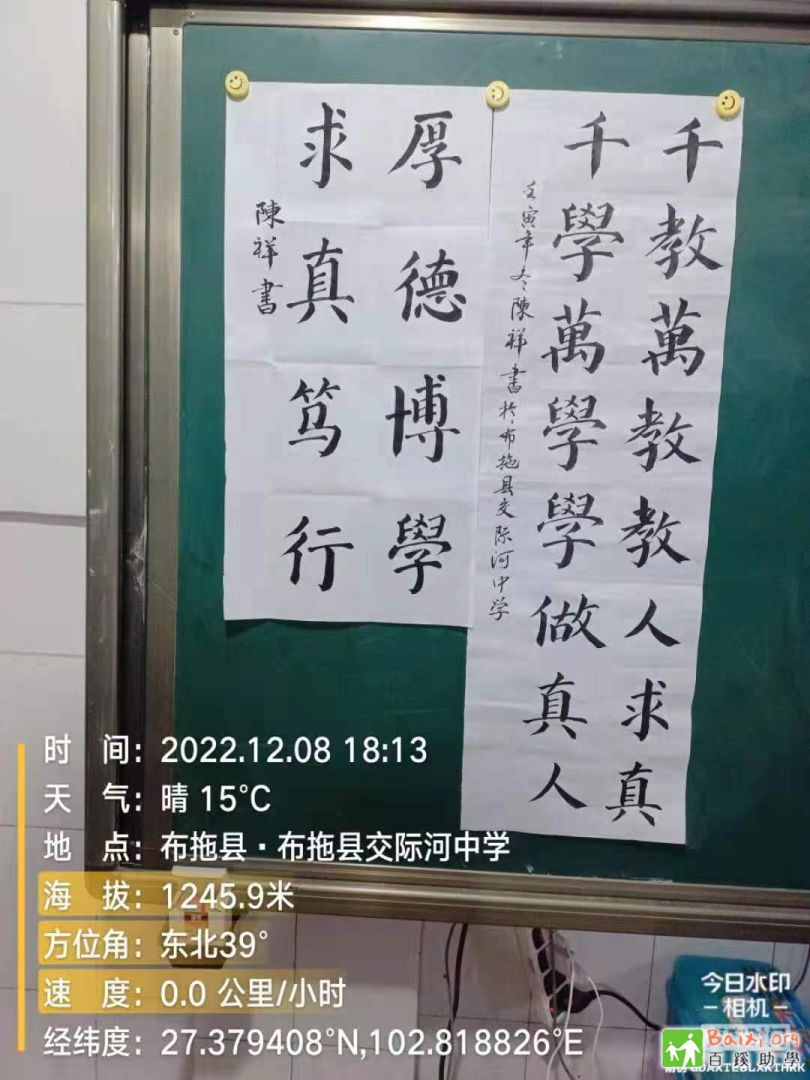 千教萬教教人求真
千學萬學學做真人
壬寅年冬陳祥書於布拖县交际河中学
厚德博學
求真笃行
陳祥書
时 间：2022.12.08 18:13
天 气：晴 15℃
地 点：布拖县·布拖县交际河中学
海 拔：1245.9米
方位角：东北39°
速 度：0.0 公里/小时
经纬度：27.379408°N,102.818826°E
今日水印
-相机-
Baixi.org
百蹊助學